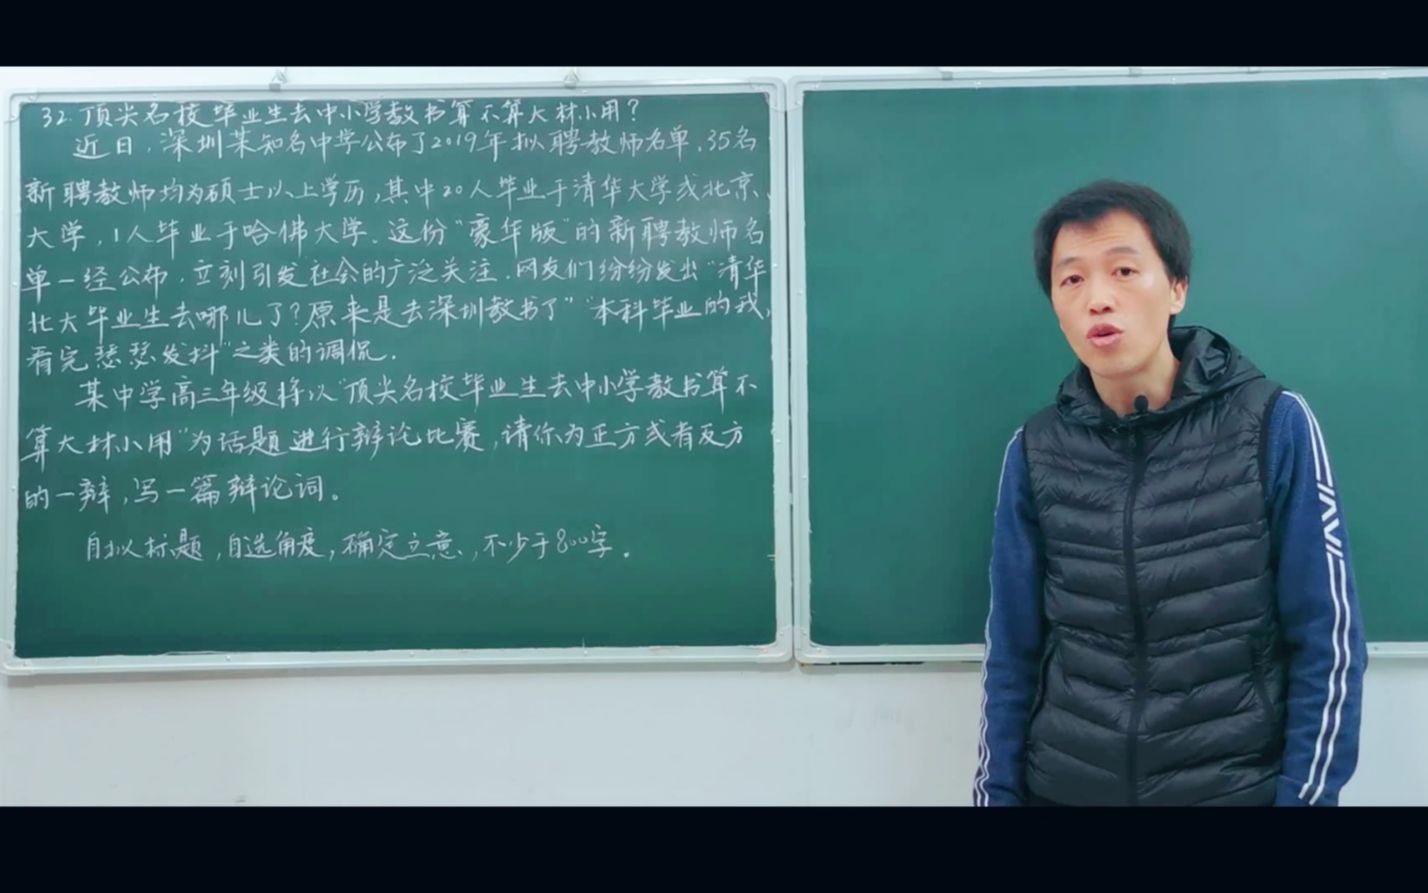 32.顶尖名校毕业生去中小学教书算不算大材小用?
近日,深圳某知名中学公布了2019年拟聘教师名单,35名
新聘教师均为硕士以上学历,其中20人毕业于清华大学或北京
大学,1人毕业于哈佛大学。这份“豪华版”的新聘教师名
单一经公布,立刻引发社会的广泛关注,网友们纷纷发出“清华
北大毕业生去哪儿了?原来是去深圳教书了”“本科毕业的我,
看完瑟瑟发抖”之类的调侃.
某中学高三年级将以“顶尖名校毕业生去中小学教书算不
算大材小用”为话题进行辩论比赛,请你为正方或者反方
的一辩,写一篇辩论词。
自拟标题,自选角度,确定立意,不少于800字.